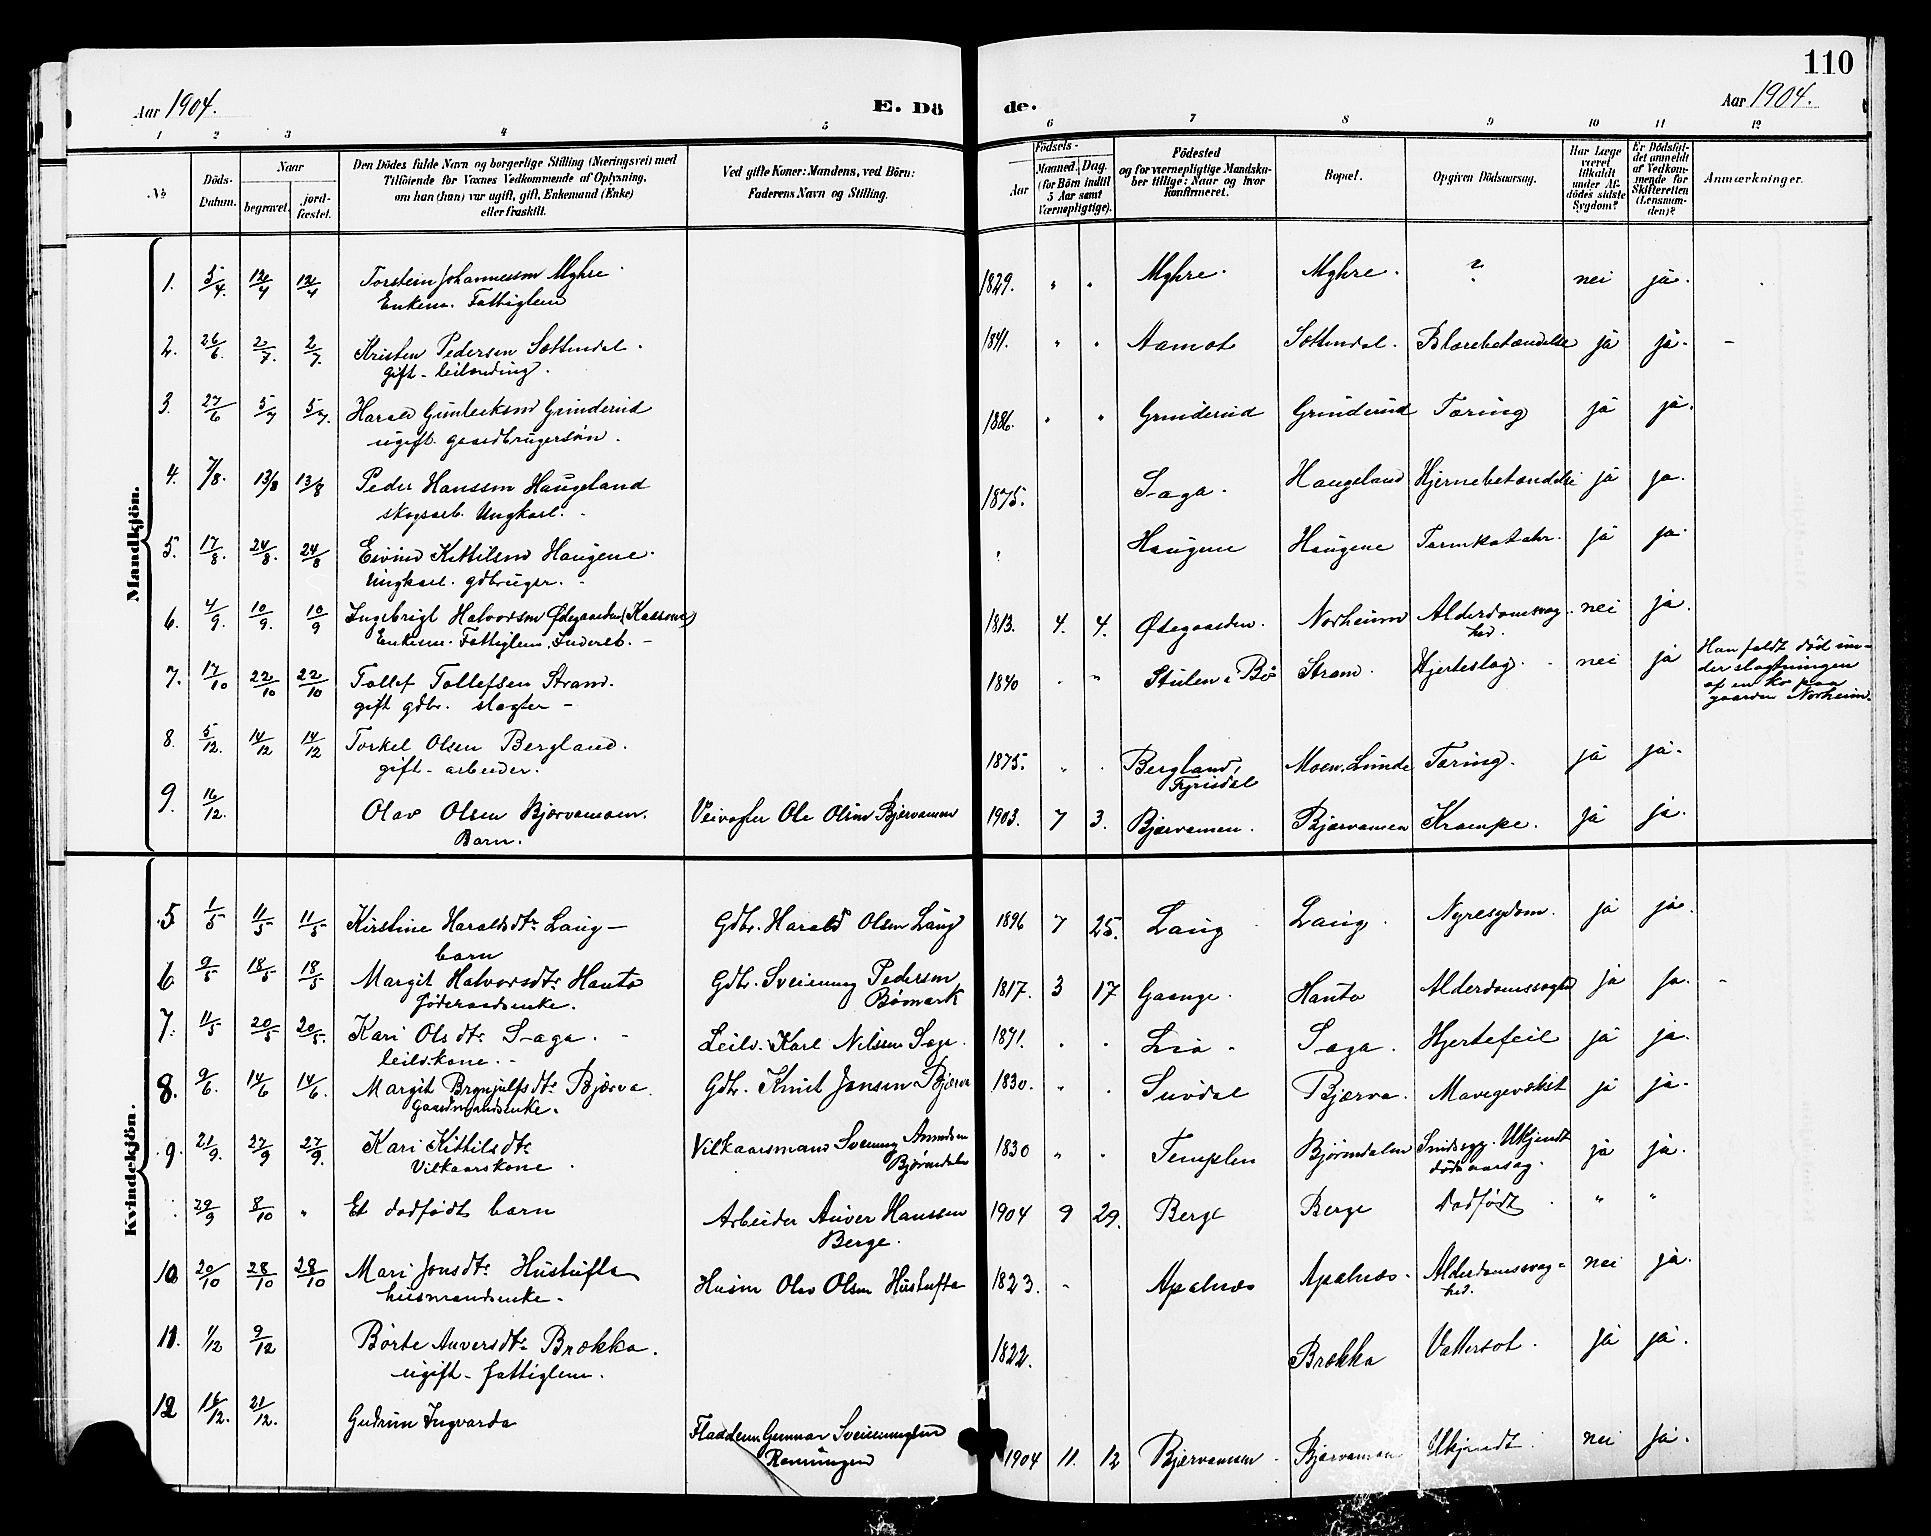 110
Aar 1904.
E. Dö
de.
Aar 1904.
1 2 3 4 5 6 7 8 9 10 11 12
No
Döds-Datum.
Naar
begravet.
jord-fæstet.
Den Dödes fulde Navn og borgerlige Stilling (Næringsvei) med
Tilföiende for Voxnes Vedkommende af Oplysning,
om han (hun) var ugift, gift, Enkemand (Enke)
eller fraskilt.
Ved gifte Koner: Mandens, ved Börn:
Faderens Navn og Stilling.
Födsels-
Aar
Maaned. Dag.
(for Börn indtil
5 Aar samt
Værnepligtige).
Födested
og for værnepligtige Mandska-
ber tillige: Naar og hvor
konfirmeret.
Bopæl.
Opgiven Dödsaarsag.
Har Læge
været
tilkaldt
under Af-
dödes sidste
Sygdom?
Er Dödsfal-
det anmeldt
af Vedkom-
mende for
Skifteretten
(Lensman-
den)?
Anmærkninger.
Mandkjön.
1. 5/4. 12/4 12/4 Torstein Johannessøn Myhre. 1829. " " Myhre. Myhre. ? nei ja.
Enkem. Fattiglem
2. 26/6 2/7 2/7 Kristen Pedersen Sottendal. 1841. " " Aamot Sottendal. Blærebetændelse ja ja. –
gift – leilænding.
3. 27/6 5/7 5/7. Harald Gunleiksen Grinderud 1886. " " Grinderud Grinderud Tæring ja ja.
ugift. gaardbrugersøn.
4. 7/8. 13/8 13/8 Peder Hanssøn Haugeland 1875. Saga. Haugeland Hjernebetændelse ja ja.
skogsarb. Ungkarl.
5. 17/8. 24/8. 24/8 Eivind Kittilsen Haugene. " Haugene Haugene Tarmkatahr. ja ja.
Ungkarl. gdbruger.
6. 4/9. 10/9. 10/9 Ingebrigt Halvorsen Øtegaarden (Kassene) 1813. 4. 4. Øtegaarden. Norheim Alderdomssvag- nei ja.
Enkem. Fattiglem, Inderst. – hed.
7. 17/10 22/10 22/10 Tollef Tollefsen Strand. 1840 " " Stulen i Bø Strand. Hjerteslag. nei ja Han faldt død un-
gift gdbr. slagter – der slagtningen
af en ko paa
gaarden Norheim.
8. 5/12. 14/12 14/12 Torkel Olsen Bergland. 1875. " " Bergland, Moen, Lunde Tæring. ja ja.
gift – arbeider. Fyrisdal
9. 16/12. Olav Olsen Bjørvamoen. Veivogter Ole Olsen Bjervamoen 1903. 7 3. Bjærvamoen. Bjærvamoen Krampe. ja ja.
Barn.
Kvindekjön.
5 1/5 11/5 11/5 Kirstine Haraldsdtr Laug – Gdbr. Harald Olsen Laug 1896 7 25. Laug Laug. Nyresygdom. ja ja.
barn
6 9/5 18/5 18/5 Margit Halvorsdtr Hauto Gdbr. Sveinung Pedersen 1817. 3 17 Gaange. Hauto Alderdomssvaghd ja ja. –
føderaadsenke. Bømark
7. 11/5 20/5 20/5. Kari Olsdtr Saga. Leilv. Karl Nilsen Saga. 1871. " " Lia – Saga. Hjertefeil ja ja.
leilv.kone. –
8. 9/6. 14/6 14/6. Margit Brynjulfsdtr Bjærva. Gdbr. Knut Jansen Bjærva 1830. " " Suvdal Bjærva. Mavegevækst ja ja.
Gaardmandsenke.
9. 21/9. 27/9 27/9. Kari Kittilsdtr Vilkaarsmand Sveinung Amundsen 1830 " " Templen Bjørndalen Sindssyg. Ukjendt ja ja.
Vilkaarskone. Bjørndalen dødsaarsag.
29/9 8/10 " Et dødfødt barn Arbeider Auver Hanssen 1904 9 29. Berge Berge Dødfødt. " "
Berge.
10 20/10 28/10 28/10 Mari Jonsdtr Hustufta Husm Olav Olsen Hustufta 1823. " Apalnæs Apalnæs. Alderdomssvag- nei ja.
husmandsenke. – hed.
11. 1/12 9/12 Børte Auversdtr Brækka. 1822. Brækka Vattersot. ja ja.
ugift – fattiglem.
12 16/12. 21/12. Gudrun Ingvarda Flaadem. Gunnar Sveinungsen 1904 11. 12 Bjærvamoen. Bjærvamoen Ukjendt. nei ja.
Rønningen